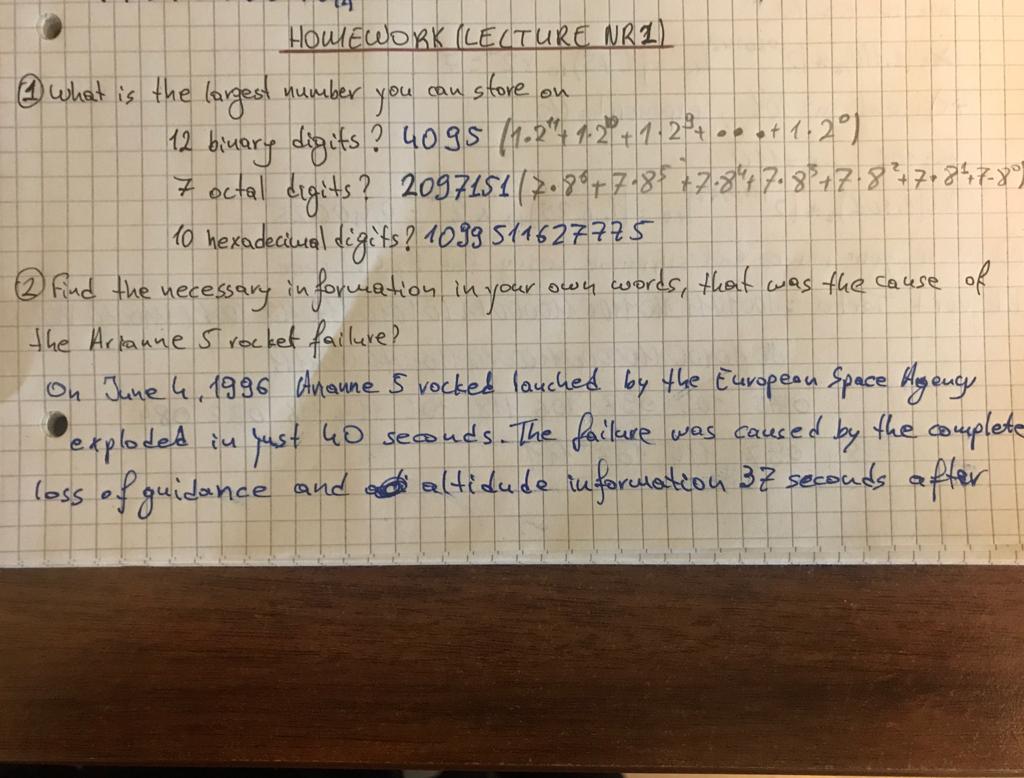 HOMEWORK (LECTURE NR1)
① What is the largest number you can store on
12 binary digits? 4095 (1·2¹¹+1·2¹⁰+1·2⁹+•••+1·2⁰)
7 octal digits? 2097151 (7·8⁶+7·8⁵+7·8⁴+7·8³+7·8²+7·8¹+7·8⁰)
10 hexadecimal digits? 1099511627775
② Find the necessary information in your own words, that was the cause of
the Arianne 5 rocket failure?
On June 4, 1996 Arianne 5 rocked lauched by the European Space Agency
exploded in just 40 seconds. The failure was caused by the complete
loss of guidance and altidude information 37 seconds after